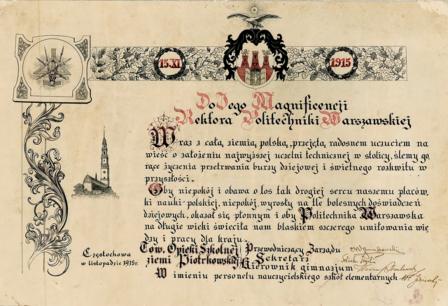 15.XI 1915
Do Jego Magnificencji
Rektora Politechniki Warszawskiej
Wraz z całą, ziemią, polską, przejętą, radosnem uczuciem na
wieść o założeniu najwyższej uczelni technicznej w stolicy, ślemy go
rące życzenia przetrwania burzy dziejowej i świetnego rozkwitu w
przyszłości.
Oby niepokój i obawa o los tak drogiej sercu naszemu placów,
ki nauki polskiej, niepokój, wyrosły na tle bolesnych doświadczeń
dziejowych, okazał się płonnym i oby Politechnika Warszawska
na długie wieki świeciła nam blaskiem szczerego umiłowania wie
dzy i pracy dla kraju.
Tow. Opieki Szkolnej Przewodniczący Zarządu
ziemi Piotrkowskiej Sekretarz
Kierownik gimnazjum
W imieniu personalu nauczycielskiego szkół elementarnych
Częstochowa
w listopadzie 1915r.